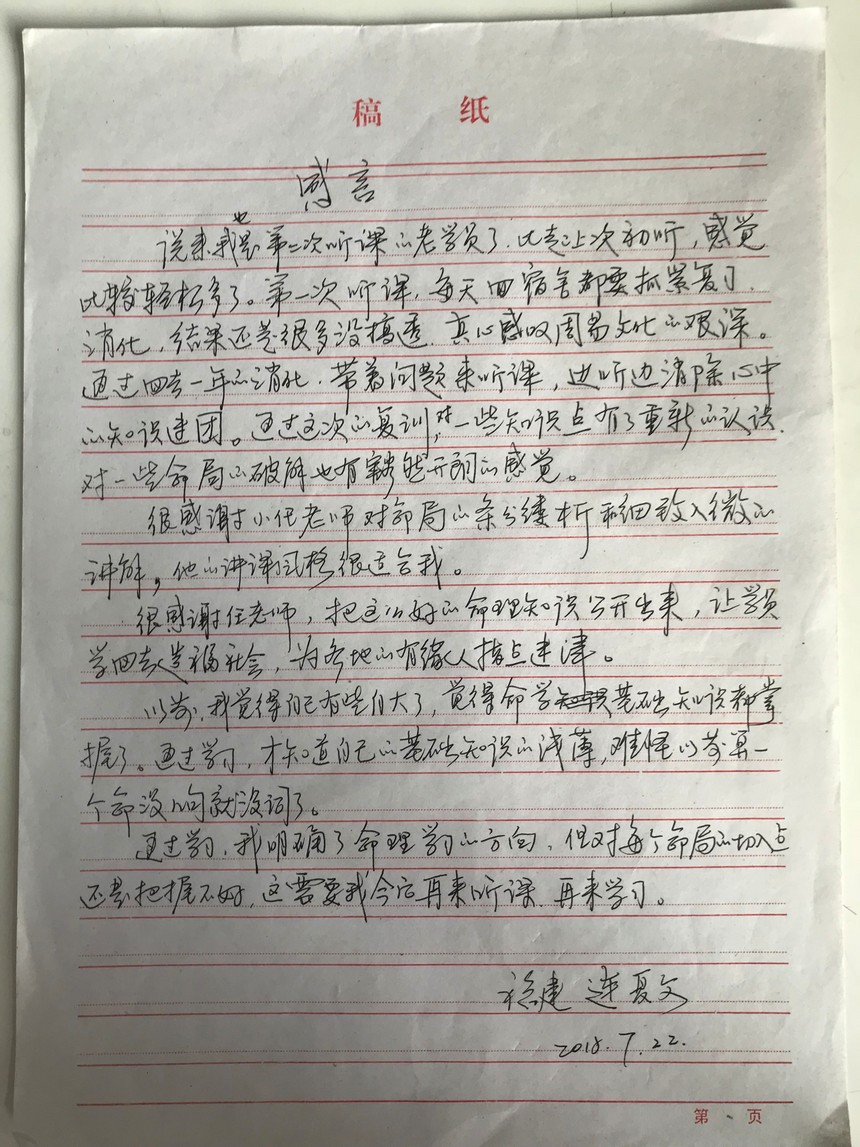 稿 纸
感言
说来我也是第二次听课的老学员了.比起上次初听,感觉
比较轻松多了。第一次听课,每天回宿舍都要抓紧复习、
消化,结果还是很多没搞透,真心感叹周易文化的艰深。
通过回去一年的消化.带着问题来听课,边听边消除心中
的知识迷团。通过这次的复训,对一些知识点有了重新的认识.
对一些命局的破解也有豁然开朗的感觉。
很感谢小任老师对命局的条分缕析和细致入微的
讲解,他的讲课风格很适合我。
很感谢任老师,把这么好的命理知识公开出来,让学员
学回去造福社会,为各地的有缘人指点迷津。
以前,我觉得自己有些自大了,觉得命学基础知识都掌
握了。通过学习,才知道自己的基础知识的浅薄,难怪以前算一
个命没几句就没词了。
通过学习,我明确了命理学习的方向,但对每个命局的切入点
还是把握不好,这需要我今后再来听课.再来学习。
福建 连夏文
2018.7.22.
第 页